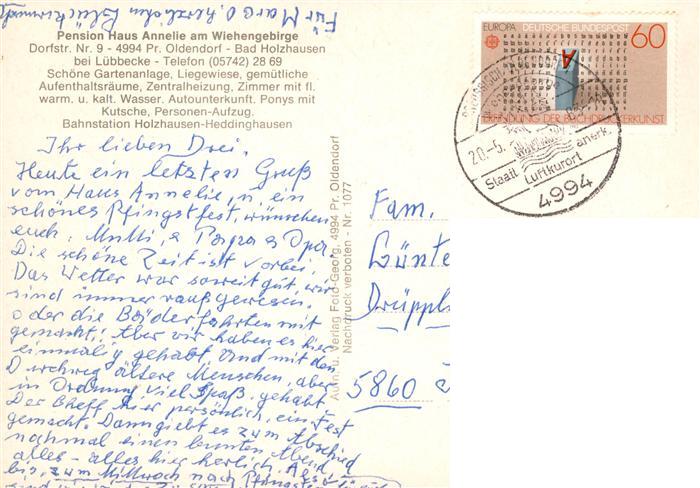 Für Marc O. herzlichen Glückwunsch
Pension Haus Annelie am Wiehengebirge
Dorfstr. Nr. 9 - 4994 Pr. Oldendorf - Bad Holzhausen
bei Lübbecke - Telefon (05742) 28 69
Schöne Gartenanlage, Liegewiese, gemütliche
Aufenthaltsräume, Zentralheizung, Zimmer mit fl.
warm. u. kalt. Wasser. Autounterkunft. Ponys mit
Kutsche, Personen-Aufzug.
Bahnstation Holzhausen-Heddinghausen
Ihr lieben Drei.
Heute ein letzten Gruß
vom Haus Annelie, u, ein
schönes Pfingstfest, wünschen
euch, Mutti, & Papa & Opa.
Die schöne Zeit ist vorbei.
Das Wetter war soweit gut, wir
sind immer rauß gewesen.
oder die Bäderfahrten mit
gemacht! Aber wir haben es hier
einmalig gehabt. Und mit den
Durchweg ältere Menschen, aber
in Ordnung, viel Spaß, gehabt
Der Cheff hier persönlich, ein Fest
gemacht. Dann giebt es zum Abschied
nochmal einen bunten Abend,
alles - alles hier herlich. Also
bis, zum Mittwoch nach Pfingsten
Aufn. u. Verlag Foto-Georg, 4994 Pr. Oldendorf
Nachdruck verboten - Nr. 1077
EUROPA DEUTSCHE BUNDESPOST 60
ERFINDUNG DER BUCHDRUCKERKUNST
A
20.-5.
Staatl. anerk.
Luftkurort
4994
Fam.
Günte
Drüppl
5860